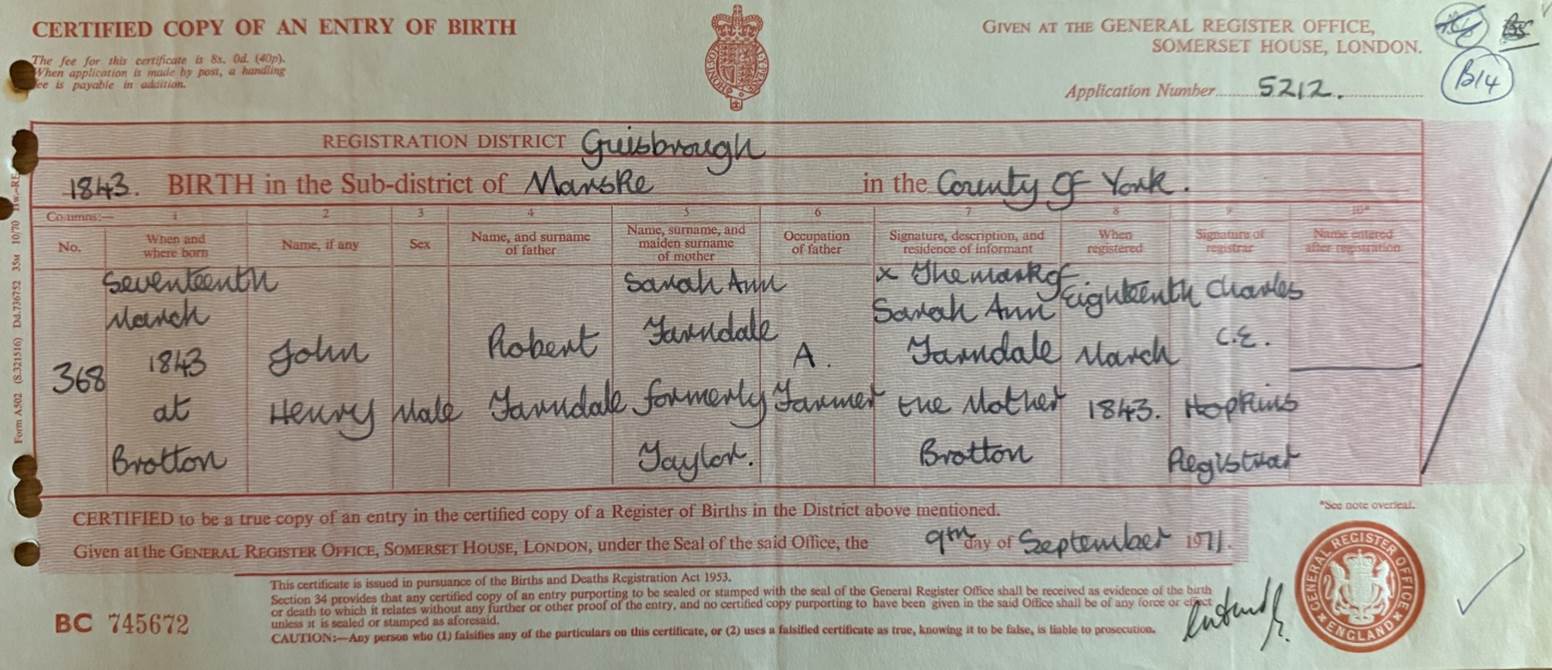 CERTIFIED COPY OF AN ENTRY OF BIRTH
The fee for this certificate is 8s. 0d. (40p).
When application is made by post, a handling
fee is payable in addition.
GIVEN AT THE GENERAL REGISTER OFFICE,
SOMERSET HOUSE, LONDON.
Application Number 5212.
B14
REGISTRATION DISTRICT Guisbrough
1843. BIRTH in the Sub-district of Marske in the County of York.
Columns:— 1 2 3 4 5 6 7 8 9 10*
No.
When and
where born
Name, if any
Sex
Name, and surname
of father
Name, surname, and
maiden surname
of mother
Occupation
of father
Signature, description, and
residence of informant
When
registered
Signature of
registrar
Name entered
after registration
368
Seventeenth
March
1843
at
Brotton
John
Henry
Male
Robert
Farndale
Sarah Ann
Farndale
formerly
Taylor.
A.
Farmer
x The mark of
Sarah Ann
Farndale
the Mother
Brotton
Eighteenth
March
1843.
Charles
C.E.
Hopkins
Registrar
CERTIFIED to be a true copy of an entry in the certified copy of a Register of Births in the District above mentioned.
Given at the GENERAL REGISTER OFFICE, SOMERSET HOUSE, LONDON, under the Seal of the said Office, the 9th day of September 1971.
*See note overleaf.
This certificate is issued in pursuance of the Births and Deaths Registration Act 1953.
Section 34 provides that any certified copy of an entry purporting to be sealed or stamped with the seal of the General Register Office shall be received as evidence of the birth
or death to which it relates without any further or other proof of the entry, and no certified copy purporting to have been given in the said Office shall be of any force or effect
unless it is sealed or stamped as aforesaid.
CAUTION:—Any person who (1) falsifies any of the particulars on this certificate, or (2) uses a falsified certificate as true, knowing it to be false, is liable to prosecution.
BC 745672
GENERAL REGISTER OFFICE
ENGLAND
Form A502 (S.321516) Dd.736752 35M 10/70